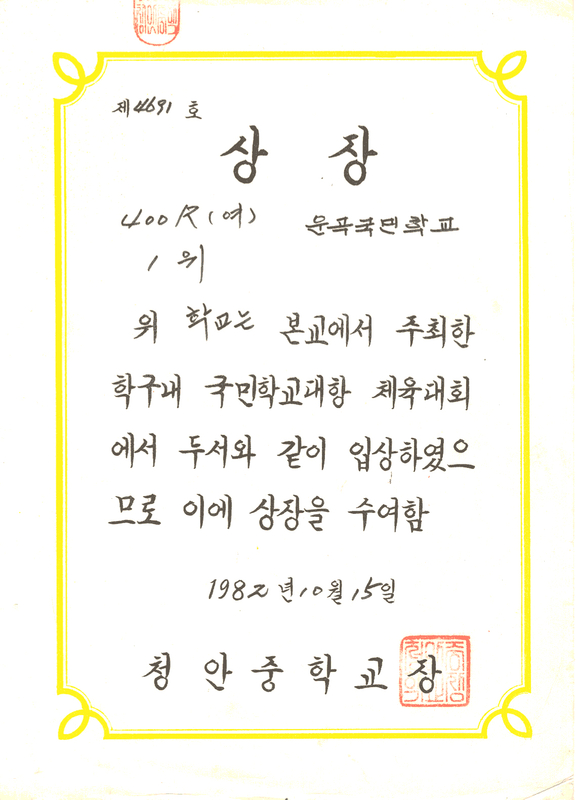 제4691호
상장
400R(여) 운곡국민학교
1위
위 학교는 본교에서 주최한
학구내 국민학교대항 체육대회
에서 두서와 같이 입상하였으
므로 이에 상장을 수여함
1982년10월15일
청안중학교장